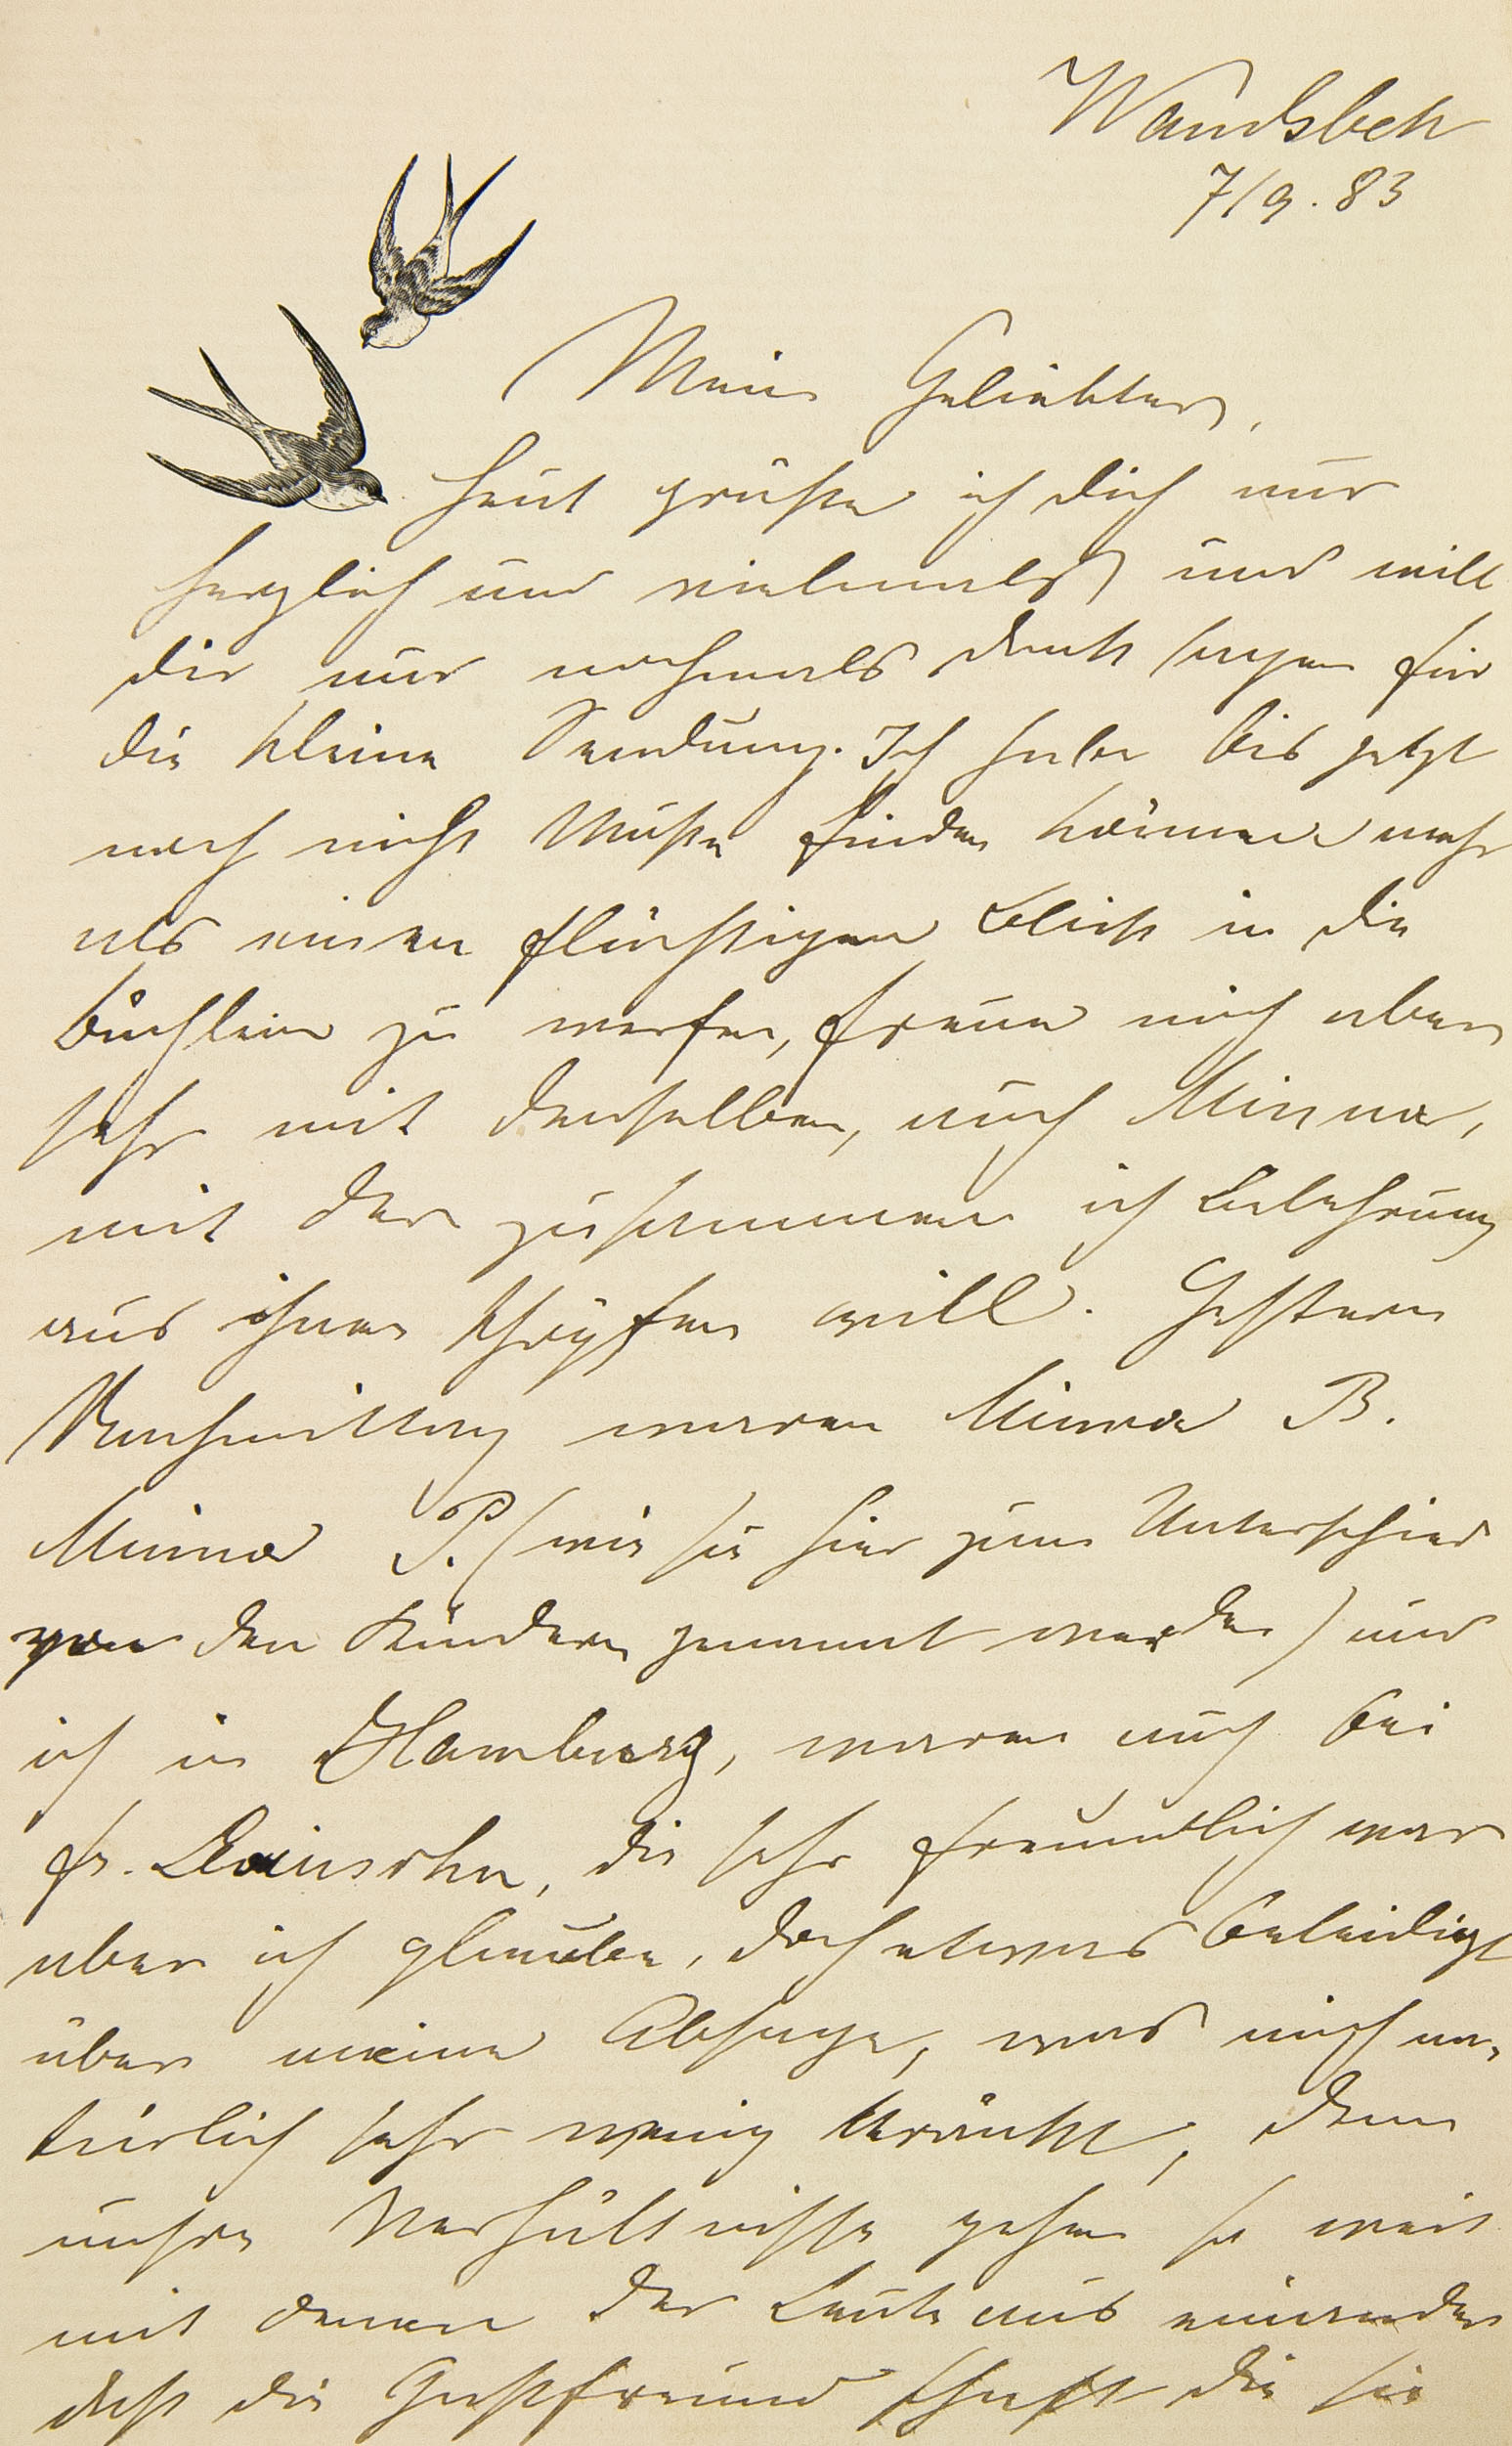 Wandsbek
7/9. 83
Mein Geliebter,
heut grüße ich Dich nur
herzlich und vielmals und will
Dir nur nochmals Dank sagen für
die kleine Sendung. Ich habe bis jetzt
noch nicht Muße finden können mehr
als einen flüchtigen Blick in die
Büchlein zu werfen, freue mich aber
sehr mit denselben, auch Minna,
mit der zusammen ich Belehrung
aus ihnen schöpfen will. Gestern
Nachmittag waren Minna B.
Minna P. (wie sie hier zum Unterschied
von den Kindern genannt werden) und
ich in Hamburg, waren auch bei
Fr. , die sehr freundlich war
aber ich glaube, doch etwas beleidigt
über meine Absage, was mich na-
türlich sehr wenig kränkt, denn
unsre Verhältnisse gehen so weit
mit denen der Leute aus einander
daß die Gastfreundschaft die sie